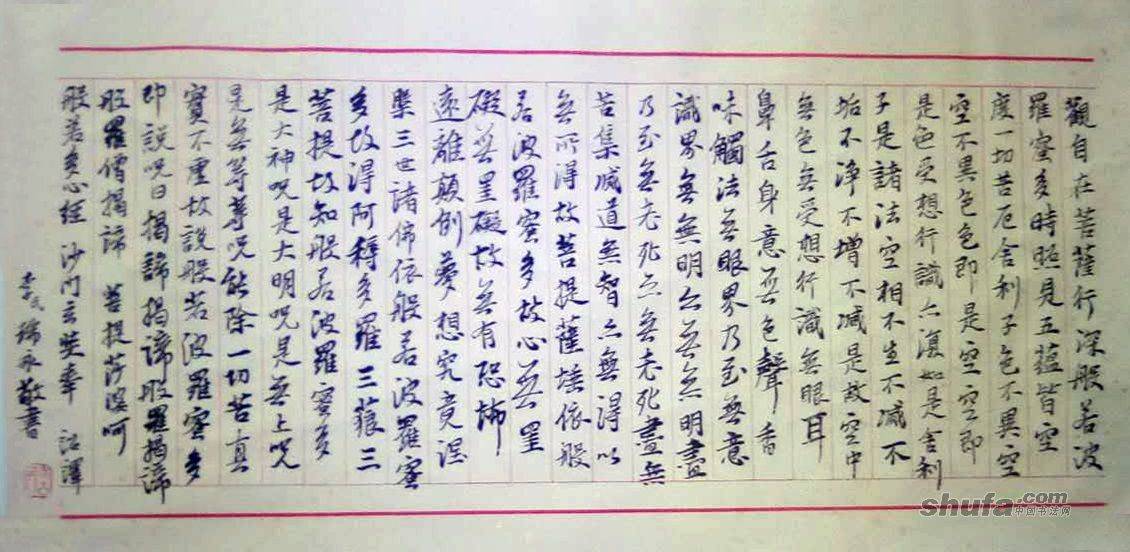 觀自在菩薩行深般若波
羅蜜多時照見五蘊皆空
度一切苦厄舍利子色不異空
空不異色色即是空空即
是色受想行識亦復如是舍利
子是諸法空相不生不滅不
垢不淨不增不減是故空中
無色無受想行識無眼耳
鼻舌身意無色聲香
味觸法無眼界乃至無意
識界無無明亦無無明盡
乃至無老死亦無老死盡無
苦集滅道無智亦無得以
無所得故菩提薩埵依般
若波羅蜜多故心無罣
礙無罣礙故無有恐怖
遠離顛倒夢想究竟涅
槃三世諸佛依般若波羅蜜
多故得阿耨多羅三藐三
菩提故知般若波羅蜜多
是大神咒是大明咒是無上咒
是無等等咒能除一切苦真
實不虛故說般若波羅蜜多
即說咒曰揭諦揭諦般羅揭諦
般羅僧揭諦 菩提莎溪呵
般若多心經 沙門玄奘奉 詔譯
李氏瑞永敬書
shufa.com
中国书法网